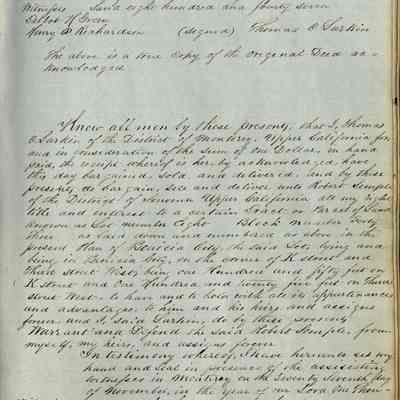 Witnesses Lord eight hundred and fourty seven
Talbot H Green
Henry D Richardson (signed) Thomas O Larkin
The above is a true copy of the original Deed ac-
knowledged
Know all men by these presents, that I, Thomas
O Larkin of the District of Monterey, Upper California for
and in consideration of the sum of One Dollar, in hand
paid, the receipt whereof is hereby acknowledged, have
this day bargained, sold, and delivered, and by these
presents do bargain, sell and deliver unto Robert Semple
of the District of Sonoma Upper California all my right
title and interest to a certain Tract or Parcel of Land
known as Lot number Eight Block number Forty
three as laid down and numbered as above in the
present Plan of Benicia City, the said Lot, lying and
being in Benicia City, on the corner of K street and
Third street West, being one Hundred and fifty feet on
K street and One Hundred and twenty five feet on Third
street West, to have and to hold with all its appurtenances
and advantages to him and his heirs and assigns
forever and I, said Larkin do by these presents
Warrant and Defend the said Robert Semple, from
myself, my heirs, and assigns forever
In testimony whereof, I have hereunto set my
hand and seal in presence of the assisting
witnesses in Monterey on the Twenty Seventh day
of November, in the year of our Lord One Thou-